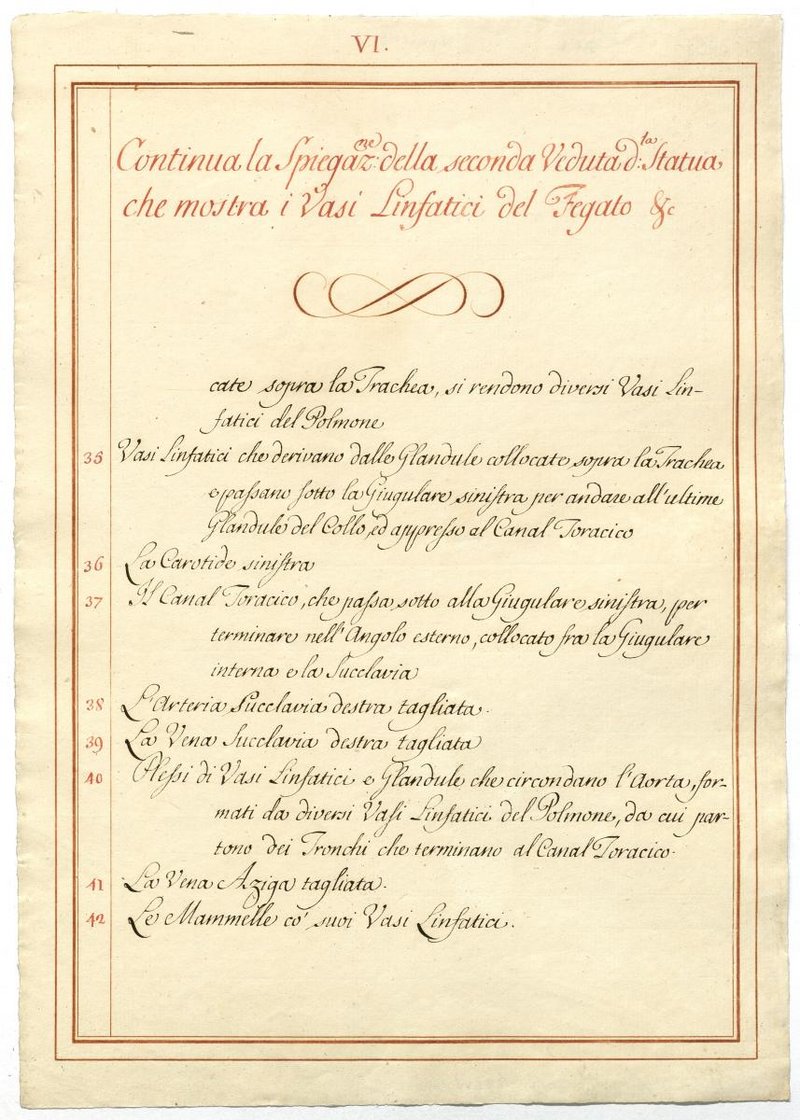 VI.
Continua la Spiegaz:ne della seconda Veduta d:ta Statua
che mostra i Vasi Linfatici del Fegato &c
cate sopra la Trachea, si rendono diversi Vasi Lin-
fatici del Polmone
35 Vasi Linfatici che derivano dalle Glandule collocate sopra la Trachea
e passano sotto la Giugulare sinistra per andare all'ultime
Glandule del Collo, ed appresso al Canal Toracico
36 La Carotide sinistra
37 Il Canal Toracico, che passa sotto alla Giugulare sinistra, per
terminare nell'Angolo esterno, collocato fra la Giugulare
interna e la Succlavia
38 L'Arteria Succlavia destra tagliata.
39 La Vena Succlavia destra tagliata
40 Plessi di Vasi Linfatici e Glandule che circondano l'Aorta, for-
mati da diversi Vasi Linfatici del Polmone, da cui par-
tono dei Tronchi che terminano al Canal Toracico.
41 La Vena Aziga tagliata.
42 Le Mammelle co' suoi Vasi Linfatici.